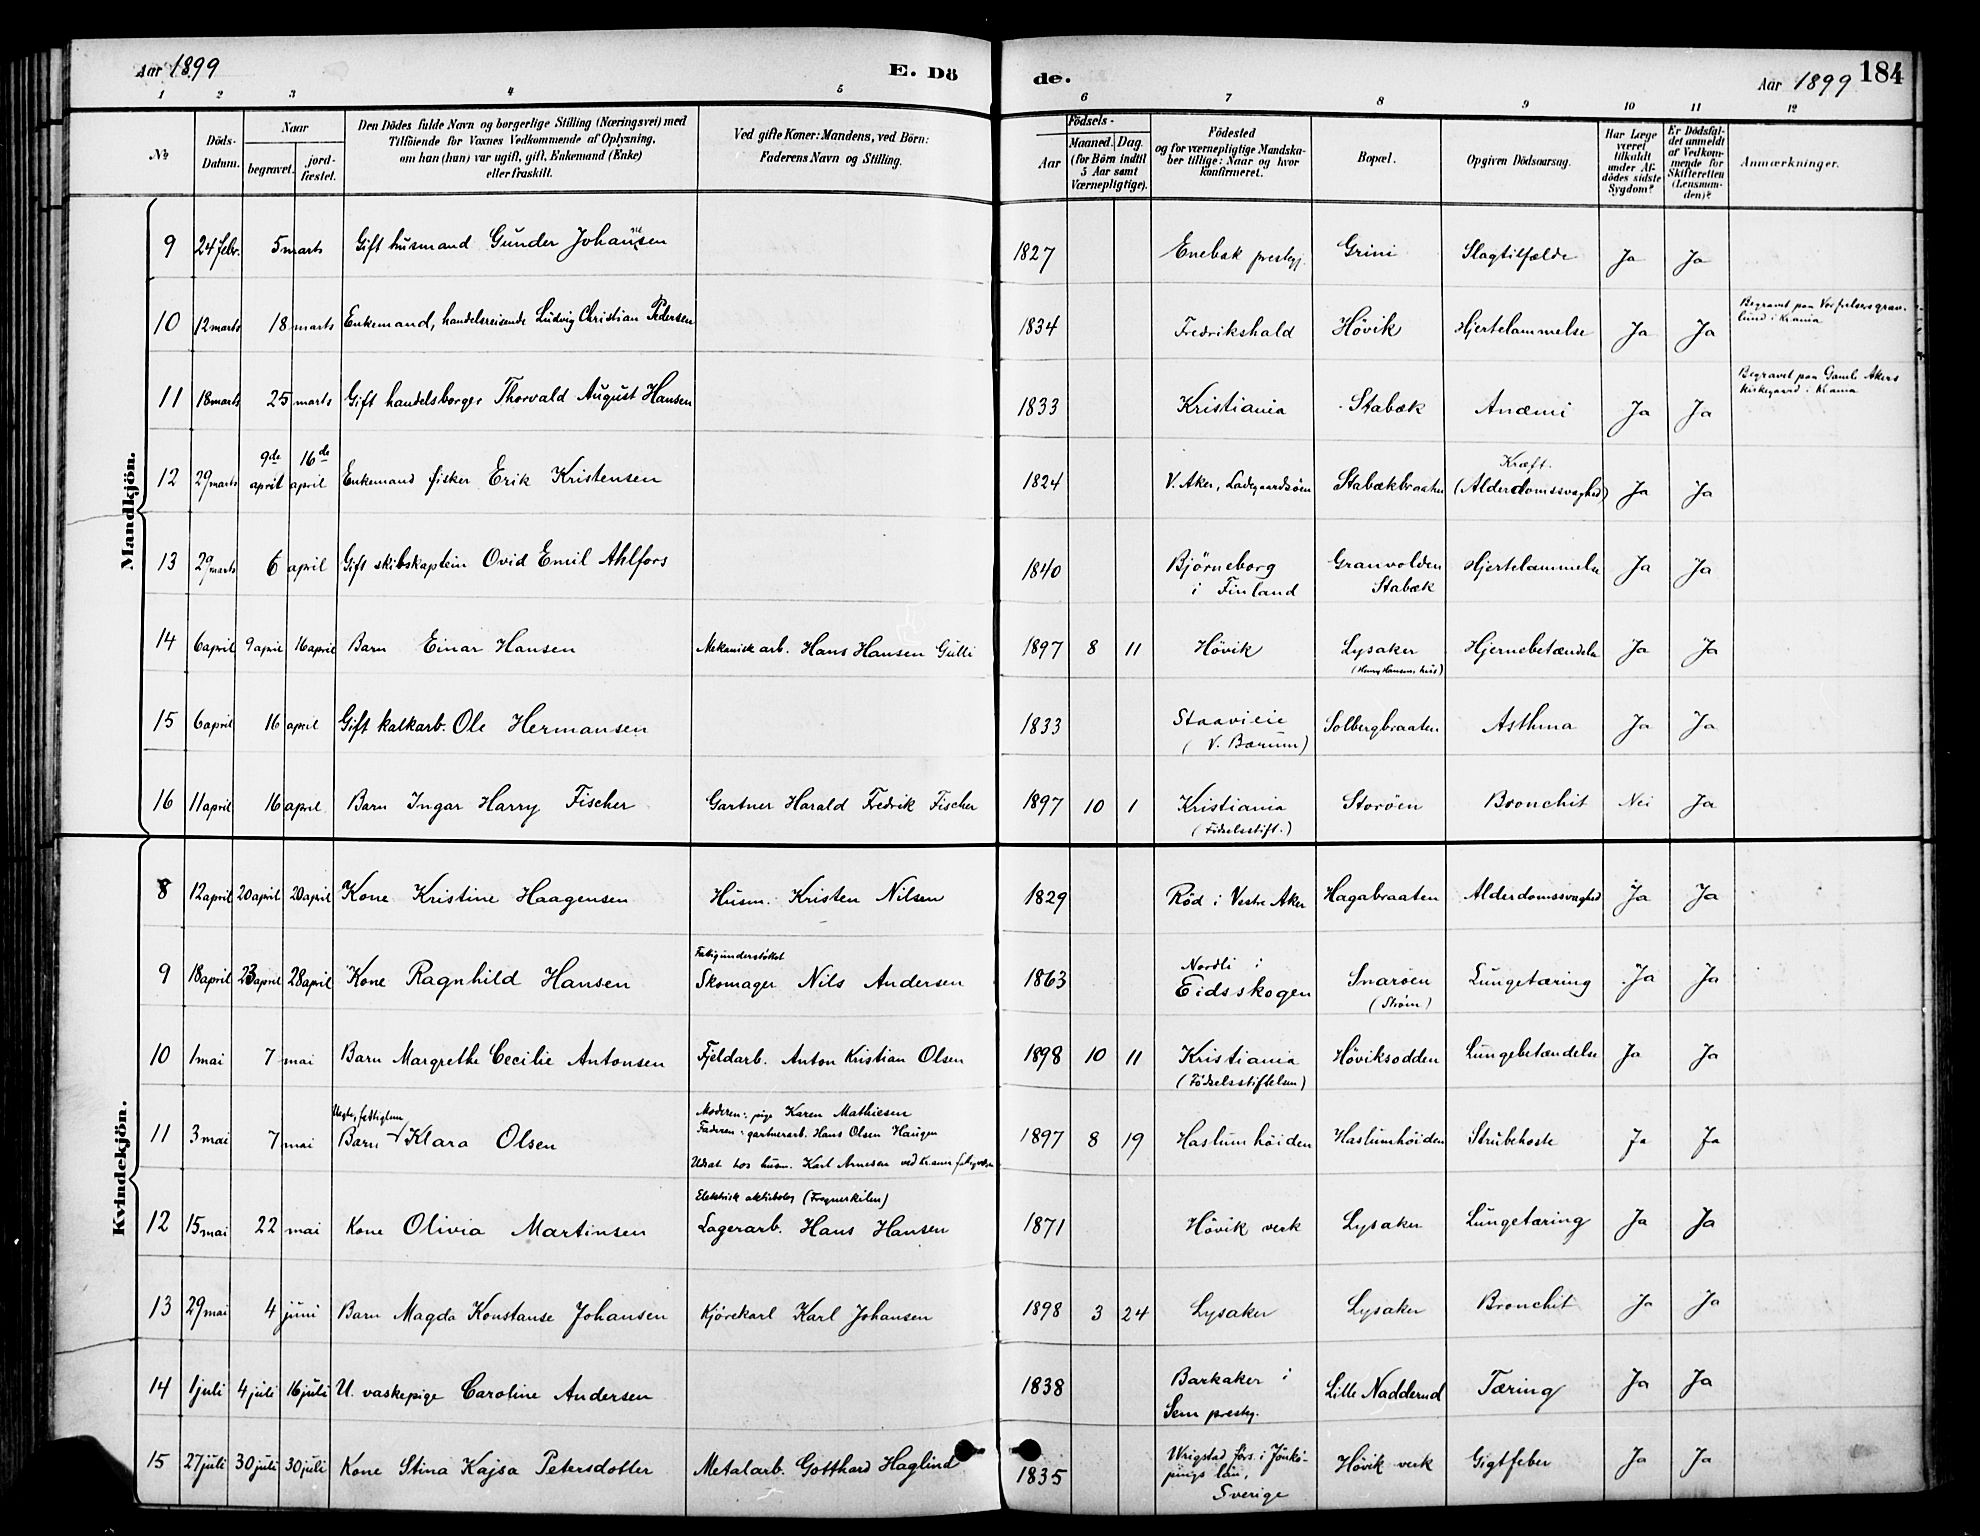 Aar 1899 E. Dö de. Aar 1899 184
1 2 3 4 5 6 7 8 9 10 11 12
№ Döds-Datum. Naar begravet. jord-fæstet. Den Dödes fulde Navn og borgerlige Stilling (Næringsvei) med Tilföiende for Voxnes Vedkommende af Oplysning, om han (hun) var ugift, gift, Enkemand (Enke) eller fraskilt. Ved gifte Koner: Mandens, ved Börn: Faderens Navn og Stilling. Födsels- Aar Maaned. Dag. (for Börn indtil 5 Aar samt Værnepligtige). Födested og for værnepligtige Mandskaber tillige: Naar og hvor konfirmeret. Bopæl. Opgiven Dödsaarsag. Har Læge været tilkaldt under Afdödes sidste Sygdom? Er Dödsfaldet anmeldt af Vedkommende for Skifteretten (Lensmanden)? Anmærkninger.
Mandkjön.
9 24 febr. 5 marts Gift husmand Gunder Johansen 1827 Enebak prestegj. Grini Slagtilfælde Ja Ja
10 12 marts 18 marts Enkemand, handelsreisende Ludvig Christian Pedersen 1834 Fredrikshald Hövik Hjertelammelse Ja Ja Begravet paa Vor frelsers gravlund i Krania
11 18 marts 25 marts Gift handelsborger Thorvald August Hansen 1833 Kristiania Stabæk Anæmi Ja Ja Begravet paa Gamle Akers kirkegaard i Krania
12 29 marts 9de april 16de april Enkemand fisker Erik Kristensen 1824 V. Aker, Ladegaardsöen Stabækbraaten Kræft. (Alderdomssvaghed) Ja Ja
13 29 marts 6 april Gift skibskaptein Ovid Emil Ahlfors 1840 Björneborg i Finland Granvolden Stabæk Hjertelammelse Ja Ja
14 6 april 9 april 16 april Barn Einar Hansen Mekanisk arb. Hans Hansen Gulli 1897 8 11 Hövik Lysaker (Henry Hansens hus) Hjernebetændelse Ja Ja
15 6 april 16 april Gift kalkarb. Ole Hermansen 1833 Staavieie (V. Bærum) Solbergbraaten Asthma Ja Ja
16 11 april 16 april Barn Ingar Harry Fischer Gartner Harald Fredrik Fischer 1897 10 1 Kristiania (Födselsstift.) Storöen Bronchit Nei Ja
Kvindekjön.
8 12 april 20 april 20 april Kone Kristine Haagensen Husm. Kristen Nilsen 1829 Röd i Vestre Aker Hagabraaten Alderdomssvaghed Ja Ja
9 18 april 23 april 28 april Kone Ragnhild Hansen Fattigunderstøttet Skomager Nils Andersen 1863 Nordli i Eidsskogen Snaröen (Strøm) Lungetæring Ja Ja
10 1 mai 7 mai Barn Margrethe Cecilie Antonsen Fjeldarb. Anton Kristian Olsen 1898 10 11 Kristiania (Födselsstiftelsen) Höviksodden Lungebetændelse Ja Ja
11 3 mai 7 mai Uegte, fattiglem Barn Klara Olsen Moderen: pige Karen Mathiesen Faderen: gartnerarb. Hans Olsen Haugen Udsat hos husm. Karl Arnesen ved Krania fattigvæsen 1897 8 19 Haslumhöiden Haslumhöiden Strubehoste Ja Ja
12 15 mai 22 mai Kone Olivia Martinsen Elektrisk aktiebolag (Frognerkilen) Lagerarb. Hans Hansen 1871 Hövik verk Lysaker Lungetæring Ja Ja
13 29 mai 4 juni Barn Magda Konstanse Johansen Kjörekarl Karl Johansen 1898 3 24 Lysaker Lysaker Bronchit Ja Ja
14 1 juli 4 juli 16 juli U. vaskepige Caroline Andersen 1838 Barkaker i Sem prestg. Lille Nadderud Tæring Ja Ja
15 27 juli 30 juli 30 juli Kone Stina Kajsa Petersdotter Metalarb. Gotthard Haglind 1835 Wrigstad förs. i Jönköpings län, Sverige Hövik verk Gigtfeber Ja Ja